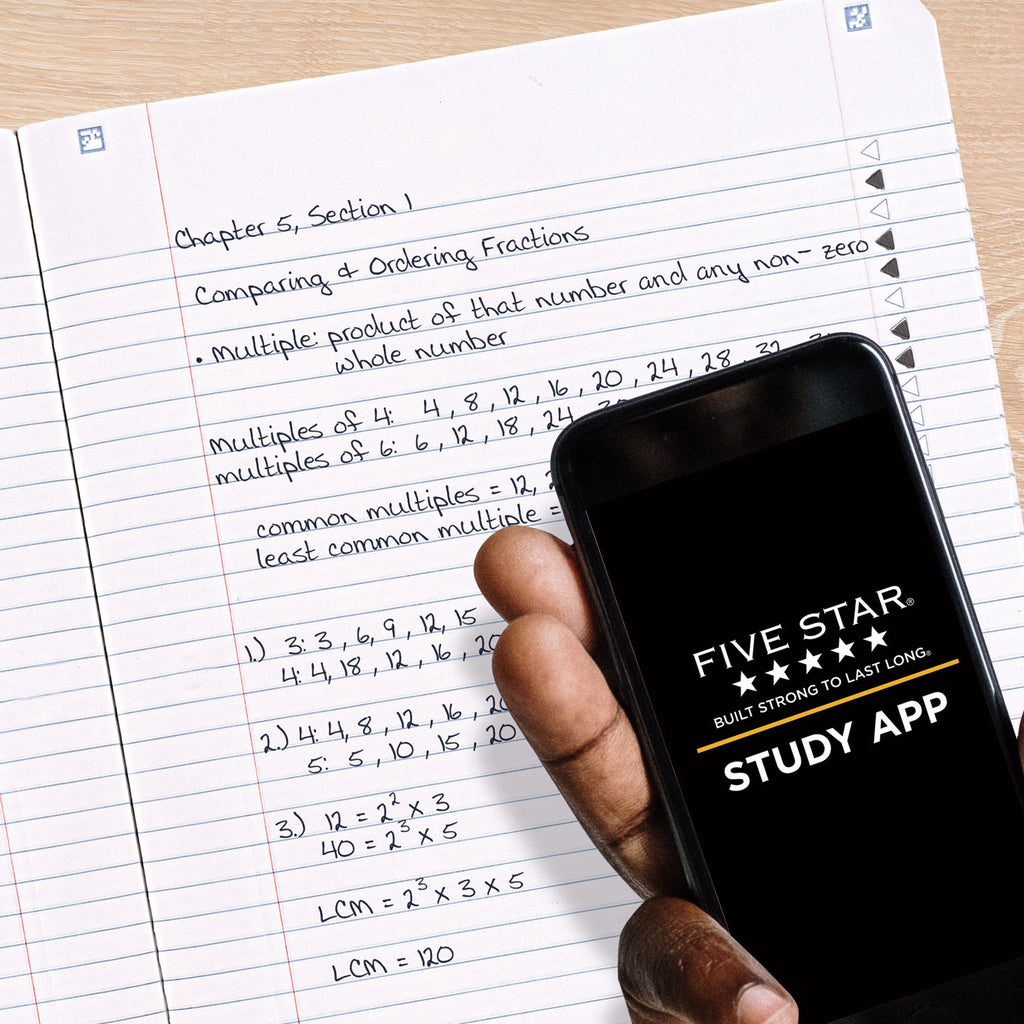 Chapter 5, Section 1
Comparing & Ordering Fractions
• Multiple: product of that number and any non-zero
whole number
multiples of 4: 4, 8, 12, 16, 20, 24, 28, 32,
multiples of 6: 6, 12, 18, 24
common multiples = 12,
least common multiple =
1.) 3: 3, 6, 9, 12, 15
4: 4, 18, 12, 16, 20
2.) 4: 4, 8, 12, 16, 20
5: 5, 10, 15, 20
3.) 12 = 2² x 3
40 = 2³ x 5
LCM = 2³ x 3 x 5
LCM = 120
FIVE STAR®
BUILT STRONG TO LAST LONG®
STUDY APP